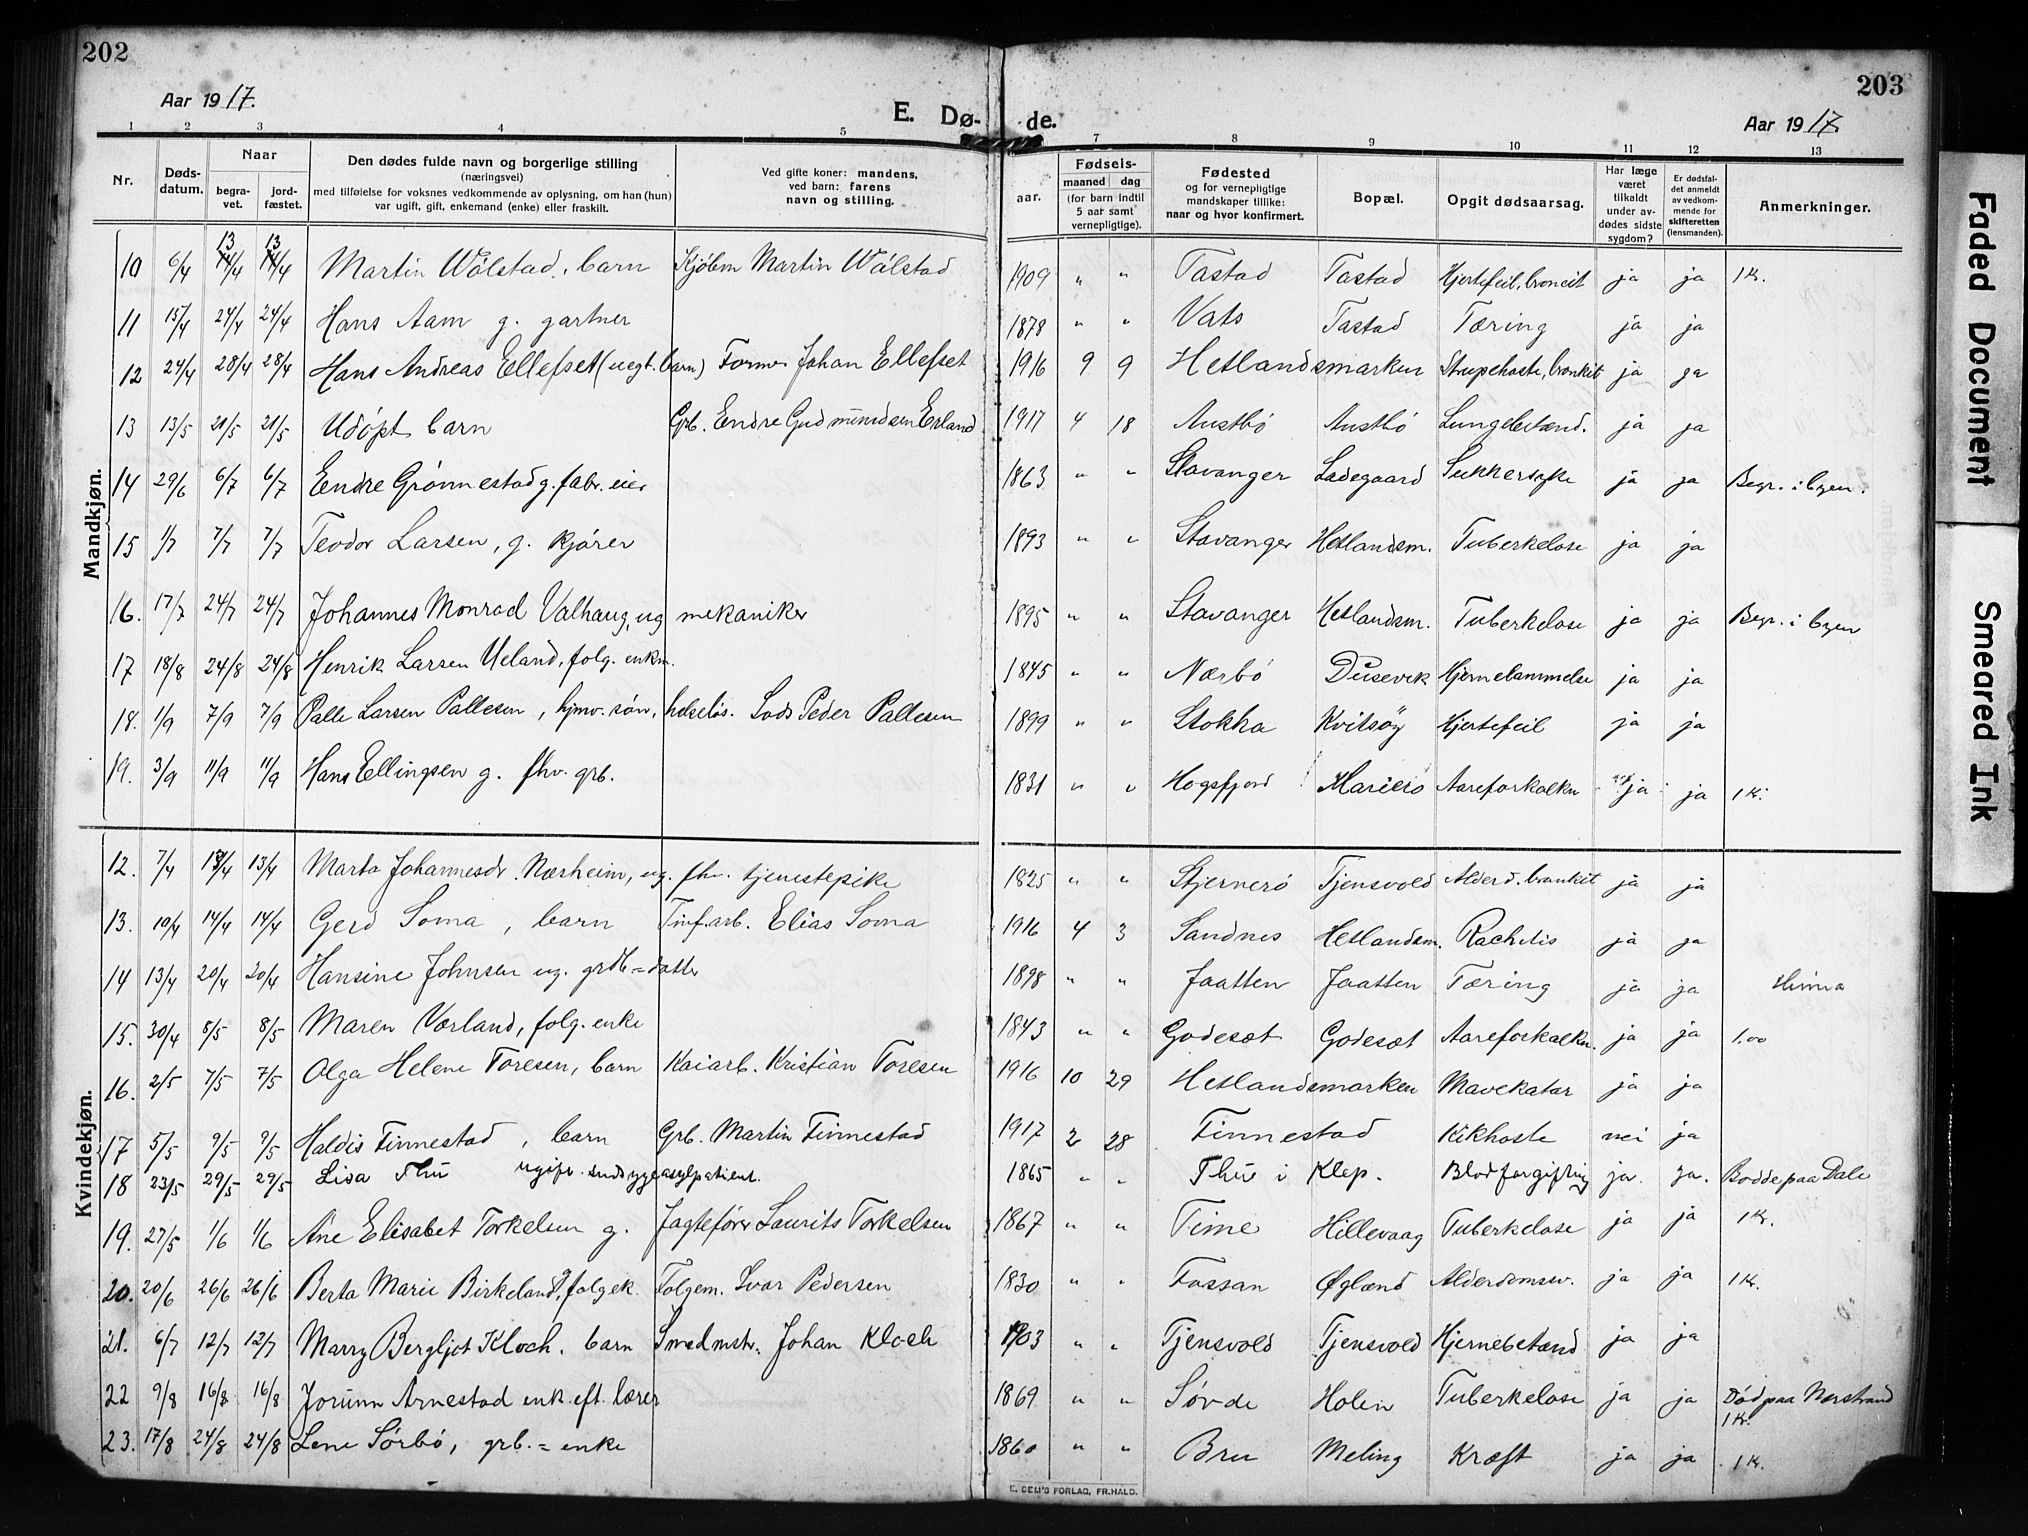 202
203
Aar 1917.
E. Dø-
de.
Aar 1917
1 2 3 4 5 7 8 9 10 11 12 13
Nr. Døds-datum. Naar begra-vet. jord-fæstet. Den dødes fulde navn og borgerlige stilling (næringsvei) med tilføielse for voksnes vedkommende av oplysning, om han (hun) var ugift, gift, enkemand (enke) eller fraskilt. Ved gifte koner: mandens, ved barn: farens navn og stilling. aar. Fødsels- maaned dag (for barn indtil 5 aar samt vernepligtige). Fødested og for vernepligtige mandskaper tillike: naar og hvor konfirmert. Bopæl. Opgit dødsaarsag. Har læge været tilkaldt under av-dødes sidste sygdom? Er dødsfal-det anmeldt av vedkom-mende for skifteretten (lensmanden). Anmerkninger.
Mandkjøn.
10 6/4 13/4 13/4 Martin Wålstad, barn Kjøbm Martin Wålstad 1909 " " Tastad Tastad Hjertefeil, broncit ja ja 1 K.
11 15/4 24/4 24/4 Hans Aam g. gartner 1878 " " Vats Tastad Tæring ja ja
12 24/4 28/4 28/4 Hans Andreas Ellefset (uegt. barn) Former Johan Ellefset 1916 9 9 Hetlandsmarken Strupehoste, bronkit ja ja
13 13/5 21/5 21/5 Udöpt barn Grb. Endre Gudmundsen Erland 1917 4 18 Austbö Austbö Lungebetænd. ja ja
14 29/6 6/7 6/7 Endre Grönnestad g. fabr. eier 1863 " " Stavanger Ladegaard Sukkersyke ja ja Begr. i byen.
15 1/7 7/7 7/7 Teodor Larsen, g. kjörer 1893 " " Stavanger Hetlandsm. Tuberkelose ja ja
16. 17/7 24/7 24/7 Johannes Monrad Valhaug, ug mekaniker 1895 " " Stavanger Hetlandsm. Tuberkelose ja ja Begr. i byen
17 18/8 24/8 24/8 Henrik Larsen Ueland, folg. enkm. 1845 " " Nærbö Dusevik Hjernelammelse ja ja
18. 1/9 7/9 7/9 Palle Larsen Pallesen, hjmv. søn, helselös. Lods Peder Pallesen 1899 " " Stokka Kvitsöy Hjertefeil ja ja
19. 3/9 11/9 11/9 Hans Ellingsen g. fhv. grb. 1831 " " Hogsfjord Mariero Aareforkalkn ja ja 1 K.
Kvindekjøn.
12. 7/4 13/4 13/4 Marta Johannesdr. Nærheim, ug. fhv. tjenestepike 1825 " " Stjernerö Tjensvold Alderd. bronkit ja ja
13. 10/4 14/4 14/4 Gerd Soma, barn Tinf.arb. Elias Soma 1916 4 3 Sandnes Hetlandsm. Rachitis ja ja
14 13/4 20/4 20/4 Hansine Johnsen ug. grdb = datter 1898 " " Jaatten Jaatten Tæring ja ja Hinna
15. 30/4 8/5 8/5 Maren Værland, folg. enke 1843 " " Godesæt Godesæt Aareforkalkn. ja ja 1.00
16. 2/5 7/5 7/5 Olga Helene Toresen, barn Kaiarb. Kristian Toresen 1916 10 29 Hetlandsmarken Mavekatar ja ja
17 5/5 9/5 9/5 Haldis Finnestad, barn Grb. Martin Finnestad 1917 2 28 Finnestad Kikhoste nei ja
18 23/5 29/5 29/5 Lisa Thu ugift. sindsygeasylpatient. 1865 " " Thu i Klep. Blodforgiftning ja. ja. Bodde paa Dale
19. 27/5 1/6 1/6 Ane Elisabet Torkelsen g. Jagtefører Laurits Torkelsen 1867 " " Time Hillevaag Tuberkelose ja ja 1 K.
20. 20/6 26/6 26/6 Berta Marie Birkeland, folgek. Folgem. Ivar Pedersen 1830 " " Fossan Øglænd Alderdomssv. ja ja 1 K.
21. 6/7 12/7 12/7 Marry Bergljot Kloch. barn Smedmstr. Johan Kloch 1903 " " Tjensvold Tjensvold Hjernebetænd ja ja
22 9/8 16/8 16/8 Jorunn Arnestad enk. eft. lærer 1869 " " Søvde Holen Tuberkelose ja ja Död paa Nærstrand 1 K.
23. 17/8 24/8 24/8 Lene Sörbö, grb. = enke 1860 " " Bru Meling Kræft ja ja 1 K.
E. SEM'S FORLAG, FR.HALD.
Faded Document
Smeared Ink